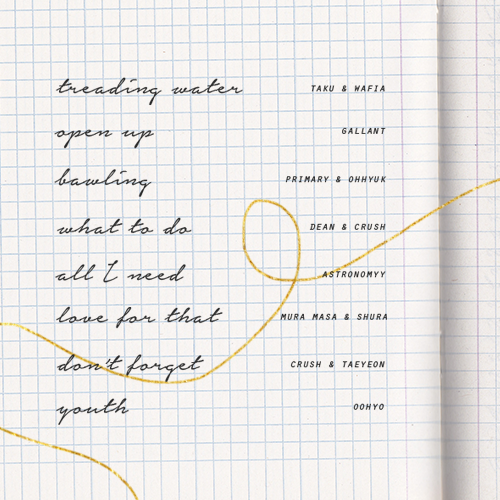 treading water TAKU & WAFIA
open up GALLANT
bawling PRIMARY & OHHYUK
what to do DEAN & CRUSH
all I need ASTRONOMYY
love for that MURA MASA & SHURA
don't forget CRUSH & TAEYEON
youth OOHYO